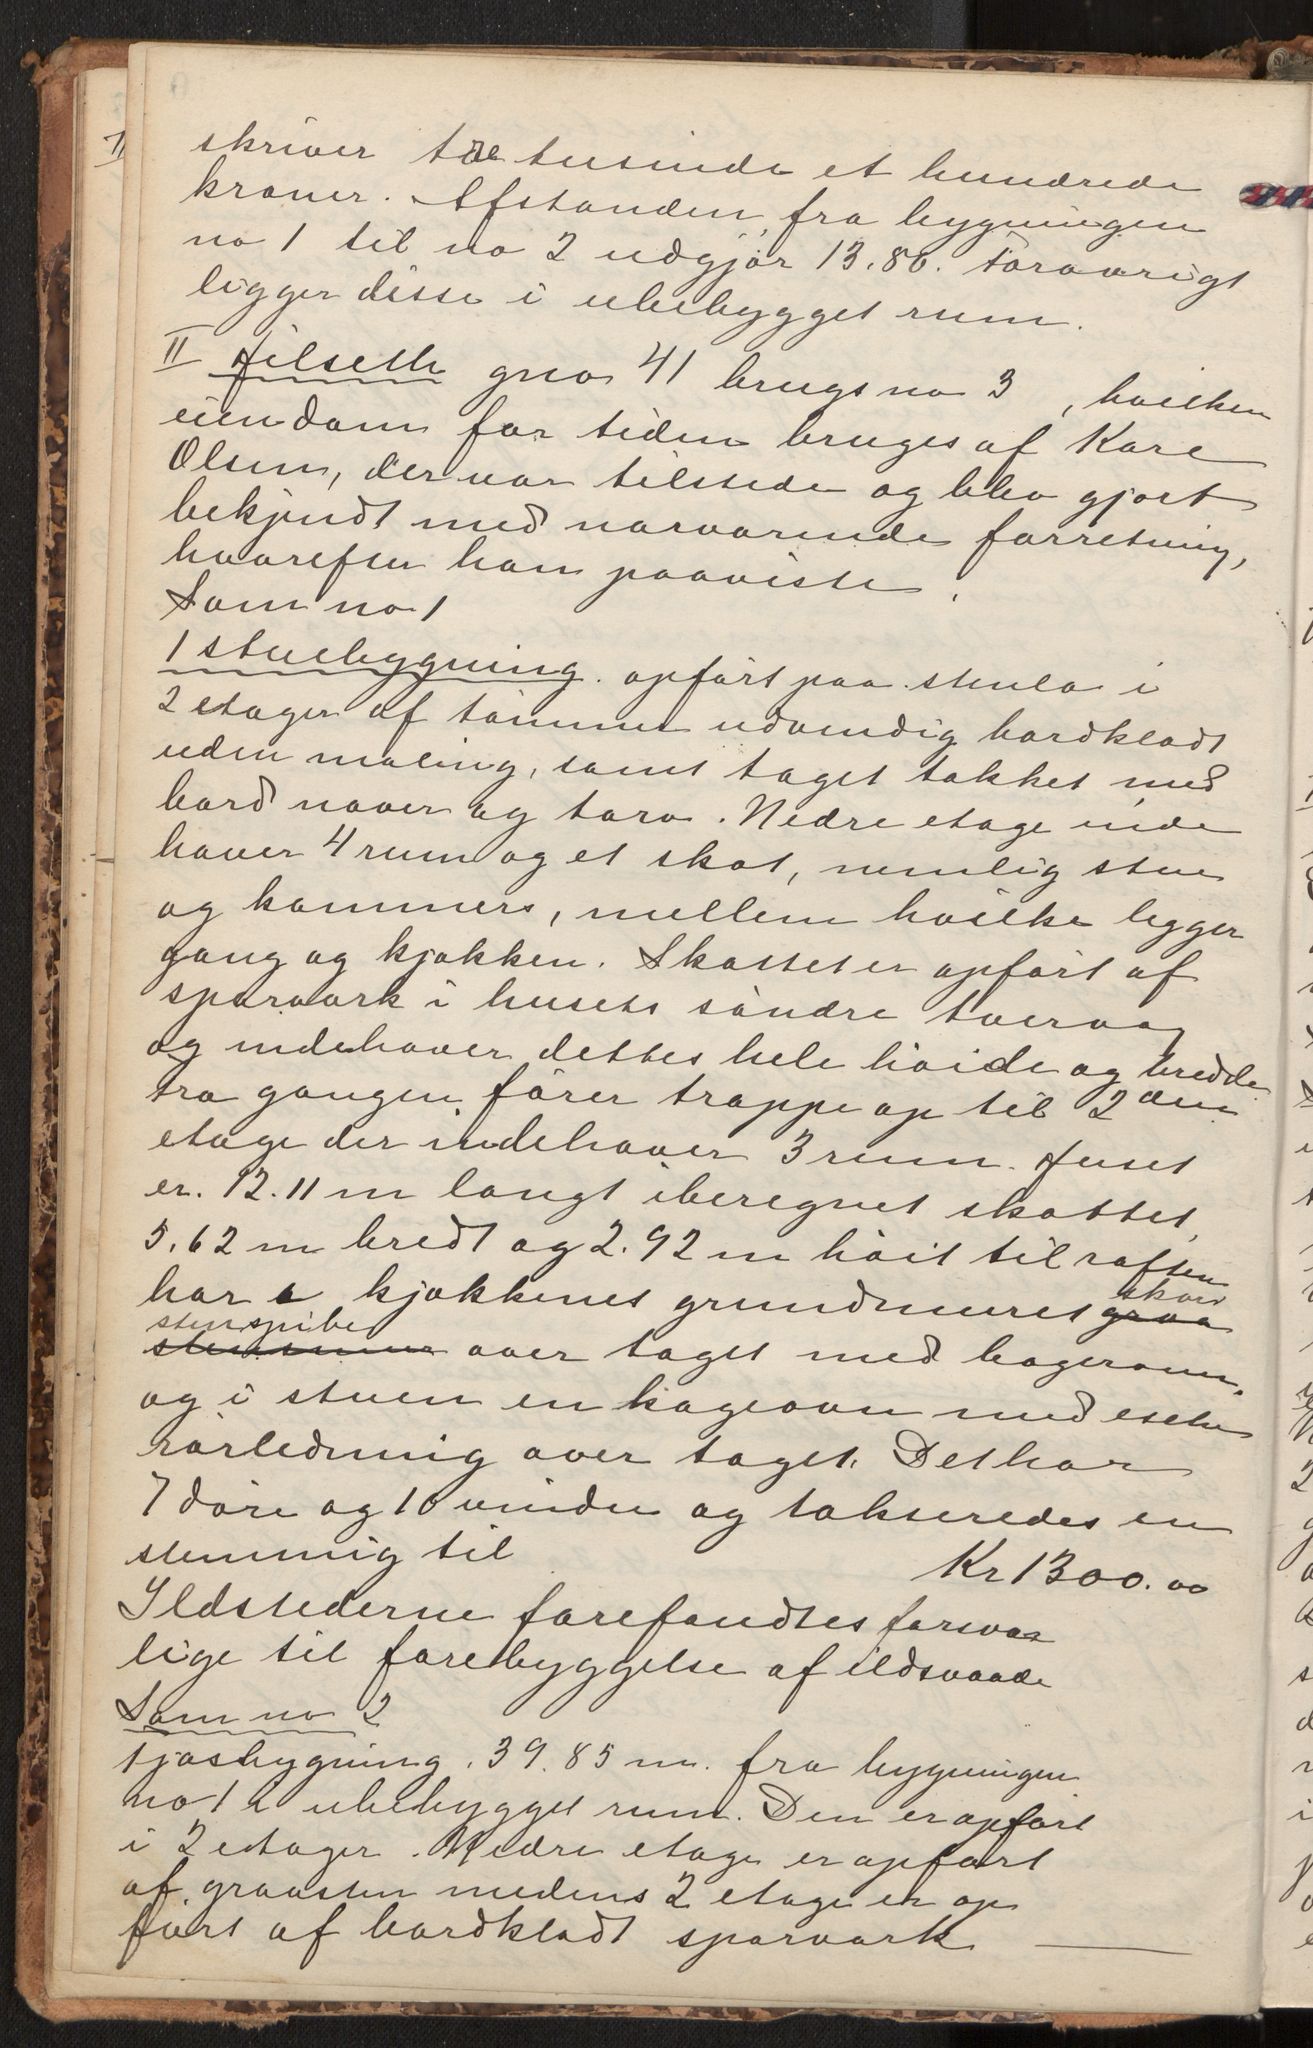 skriver tre tusinde et hundrede
kroner. Afstanden fra bygningen
no 1 til no 2 udgjør 13.80. Forøvrigt
ligger disse i ubebygget rum.
II Hilseth gno 41 brugsno 3, hvilken
eiendom for tiden bruges af Kare
Olsen, der var tilstede og blev gjort
bekjendt med nærværende forretning,
hvorefter han paaviste.
Som no 1
1 stuebygning. opført paa stenla i
2 etager af tømmer udvendig bordklædt
uden maling, samt taget tækket med
bord næver og torv. Nedre etage inde
haver 4 rum og et skot, nemlig stue
og kammers, mellem hvilke ligger
gang og kjøkken. Skottet er opført af
sperværk i husets søndre tvervæg
og indehaver dettes hele høide og bredde
Fra gangen fører trappe op til 2den
etage der indehaver 3 rum. Huset
er. 12.11 m langt iberegnet skottet,
5.62 m bredt og 2.92 m høit til raften
har i kjøkkenet grundmuret skor
stenspibe over taget med bagerovn.
og i stuen en kogeovn med
rørledning over taget. Det har
7 døre og 10 vinduer og takseredes en
stemmig til Kr 1300.00
Ildstederne forefandtes forsvar
lige til forebyggelse af ildsvaade
Som no 2
Fjøsbygning. 39.85 m. fra bygningen
no 1 i ubebygget rum. Den er opført
i 2 etager. Nedre etage er opført
af graasten medens 2 etage er op
ført af bordklædt sperværk